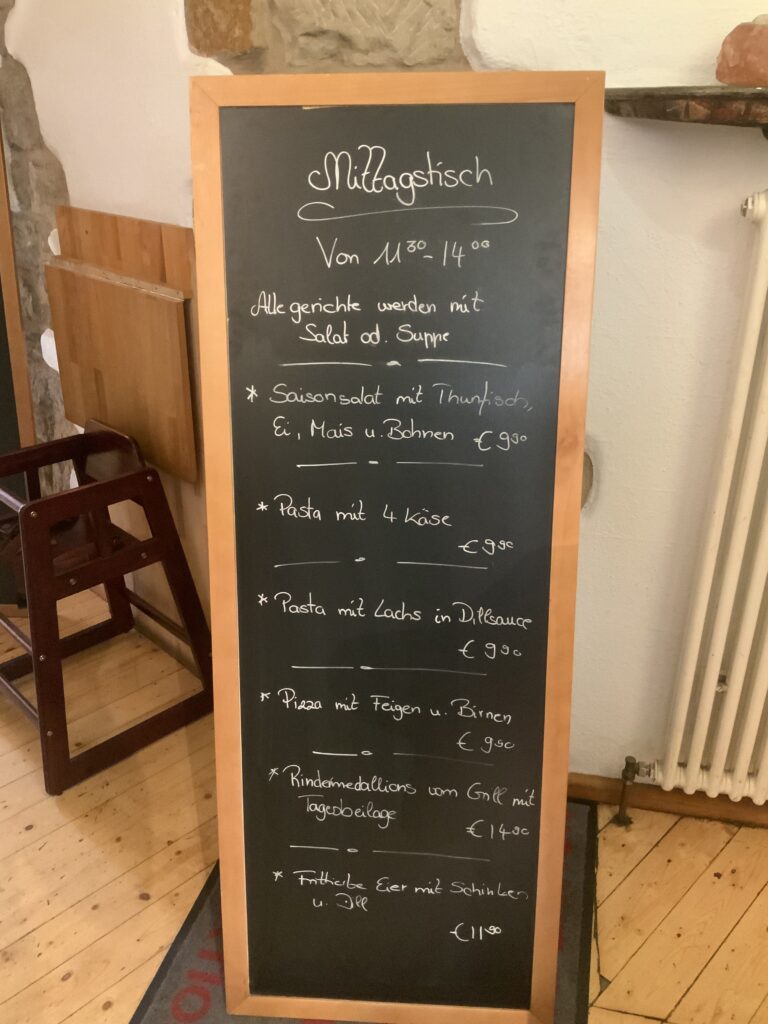 Mittagstisch
Von 11 30 - 14 00
Alle gerichte werden mit
Salat od. Suppe
* Saisonsalat mit Thunfisch,
Ei, Mais u. Bohnen € 9 90
* Pasta mit 4 Käse
€ 9 90
* Pasta mit Lachs in Dillsauce
€ 9 90
* Pizza mit Feigen u. Birnen
€ 9 90
* Rindermedallions vom Grill mit
Tagesbeilage
€ 14 90
* Eier mit Schinken
u. Dill
€ 11 90